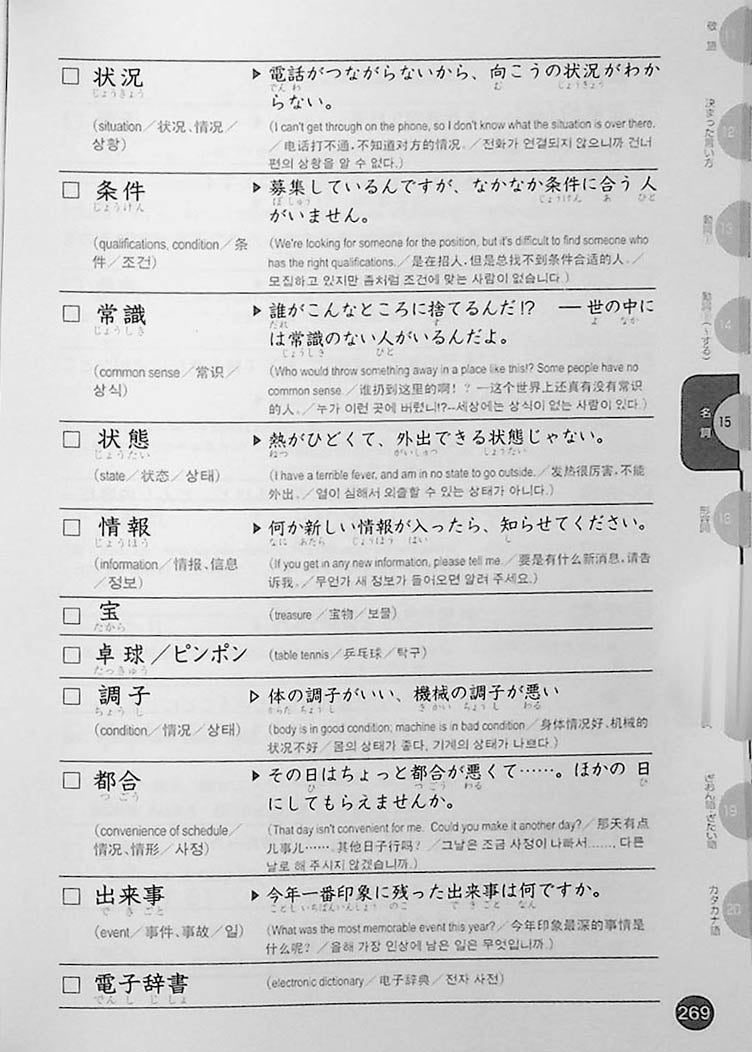 □ 状況
じょうきょう
(situation／状况、情况／
상황)
▶ 電話がつながらないから、向こうの状況がわか
でんわ む じょうきょう
らない。
(I can't get through on the phone, so I don't know what the situation is over there.
／电话打不通,不知道对方的情况。／전화가 연결되지 않으니까 건너
편의 상황을 알 수 없다.)
□ 条件
じょうけん
(qualifications, condition／条
件／조건)
▶ 募集しているんですが、なかなか条件に合う人
ぼしゅう じょうけん あ ひと
がいません。
(We're looking for someone for the position, but it's difficult to find someone who
has the right qualifications.／是在招人,但是总找不到条件合适的人。／
모집하고 있지만 좀처럼 조건에 맞는 사람이 없습니다.)
□ 常識
じょうしき
(common sense／常识／
상식)
▶ 誰がこんなところに捨てるんだ!? ―世の中に
だれ す よ なか
は常識のない人がいるんだよ。
じょうしき ひと
(Who would throw something away in a place like this!? Some people have no
common sense.／谁扔到这里的啊！？一这个世界上还真有没有常识
的人。／누가 이런 곳에 버렸니!?--세상에는 상식이 없는 사람이 있다.)
□ 状態
じょうたい
(state／状态／상태)
▶ 熱がひどくて、外出できる状態じゃない。
ねつ がいしゅつ じょうたい
(I have a terrible fever, and am in no state to go outside.／发热很厉害,不能
外出。／열이 심해서 외출할 수 있는 상태가 아니다.)
□ 情報
じょうほう
(information／情报、信息
／정보)
▶ 何か新しい情報が入ったら、知らせてください。
なに あたら じょうほう はい し
(If you get in any new information, please tell me.／要是有什么新消息,请告
诉我。／무언가 새 정보가 들어오면 알려 주세요.)
□ 宝
たから
(treasure／宝物／보물)
□ 卓球／ピンポン
たっきゅう
(table tennis／乒乓球／탁구)
□ 調子
ちょうし
(condition／情况／상태)
▷ 体の調子がいい、機械の調子が悪い
からだ ちょうし きかい ちょうし わる
(body is in good condition; machine is in bad condition／身体情况好、机械的
状况不好／몸의 상태가 좋다, 기계의 상태가 나쁘다.)
□ 都合
つごう
(convenience of schedule／
情况、情形／사정)
▶ その日はちょっと都合が悪くて……。ほかの日
ひ つごう わる ひ
にしてもらえませんか。
(That day isn't convenient for me. Could you make it another day?／那天有点
儿事儿……。其他日子行吗?／그날은 조금 사정이 나빠서……, 다른
날로 해 주시지 않겠습니까.)
□ 出来事
できごと
(event／事件、事故／일)
▶ 今年一番印象に残った出来事は何ですか。
ことしいちばんいんしょう のこ できごと なん
(What was the most memorable event this year?／今年印象最深的事情是
什么呢?／올해 가장 인상에 남은 일은 무엇입니까.)
□ 電子辞書
でんしじしょ
(electronic dictionary／电子辞典／전자 사전)
11
敬語
12
決まった言い方
13
動詞①
14
動詞②(〜する)
15
名詞
16
形容詞
19
ぎおん語・ぎたい語
20
カタカナ語
269